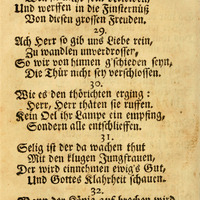 Und werffen in die Finsternüß
Von diesen grossen Freuden.
29.
Ach Herr so gib uns Liebe rein,
Zu wandlen unverdrosser,
So wir von hinnen g'schieden seyn,
Die Thür nicht sey verschlossen.
30.
Wie es den thörichten erging:
Herr, Herr thäten sie ruffen.
Kein Oel ihr Lampe ein empfing,
Sondern alle entschlieffen.
31.
Selig ist der da wachen thut
Mit den klugen Jungfrauen,
Der wird einnehmen ewig's Gut,
Und Gottes Klahrheit schauen.
32.
Wenn der König auf brechen wird